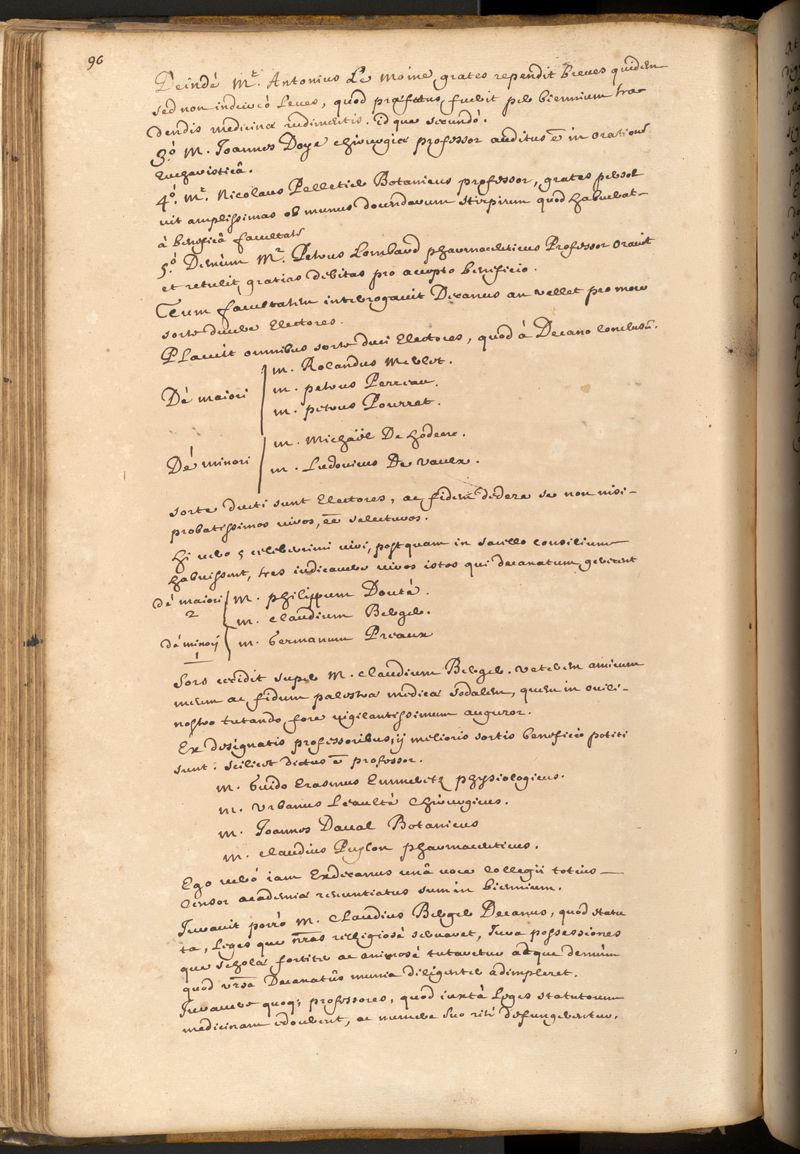 96
Deindè Mr. Antonius Le Moine, grates rependit breves quidem
sed non indiserté leves, quod præfatus fuerit per biennium tra-
dendis medicinæ rudimentis. id que secundó.
3.º M. Joannes Doye chirurgiæ professor auditus ē in oratione
Eucharistica.
4.º Mr. Nicolaus Pelletier Botanicus professor, grates persol
vit amplissimas ob munus docendarum stirpium quod habuerat
à beneficâ facultate
5.º Demùm Mr. Petrus Lombard pharmaceuticus Professor oravit
et retulit gratias debitas pro accepto beneficio.
Tum facultatem interrogavit Decanus an vellet pro more
sorte ducere Electores.
Placuit omnibus sorte duci Electores, quod à Decano conclusū.
Dé maiori
m. Rolandus Merlet.
m. petrus Perreau.
m. petrus Pourret.
Dé minori
m. Michaël De hodenc.
m. Ludovicus De vaulx.
sorte ducti sunt Electores, ac fidem dedere se non nisi-
probatissimos viros, ēē selecturos.
Hi verò 5 celeberrimi viri, postquam in sacello consilium
habuissent, tres indicavere viros istos qui decanatum gererent
dé maiori
2
m. philippum Douté.
m. claudium Berger.
dé minorj
1
m. Germanum Preaux
Sors cecidit super M. claudium Berger. veterem amicum
meum ac fidum palestræ medicæ sodalem, quem in ovili-
nostro tutando, fore vigilantissimum auguror.
Ex designatis professoribus, ij melioris sortis beneficio potiti
sunt. scilicet dictus ē professor.
m. Guido Erasmus Emmerez physiologicus.
m. Urbanus Leaulté Chirurgicus.
m. Joannes Daval Botanicus
m. claudius Puylon pharmaceuticus.
Ego verò iam Exdecanus unâ voce collegii totius
Censor academiæ renuntiatus sum in biennium.
Juravit porrò M. Claudius Berger Decanus, quod statu
ta, Leges que nr̄as religiosé servaret, Jura possessiones
que scholæ fortiter ac animosé tutaretur atque demùm
quod vr̄sa Decanatûs munia diligenter adimpleret.
Juravere quoq; professores, quod iuxtà Leges statutorum
medicinam edocerent, ac munere suo rité defungerentur.